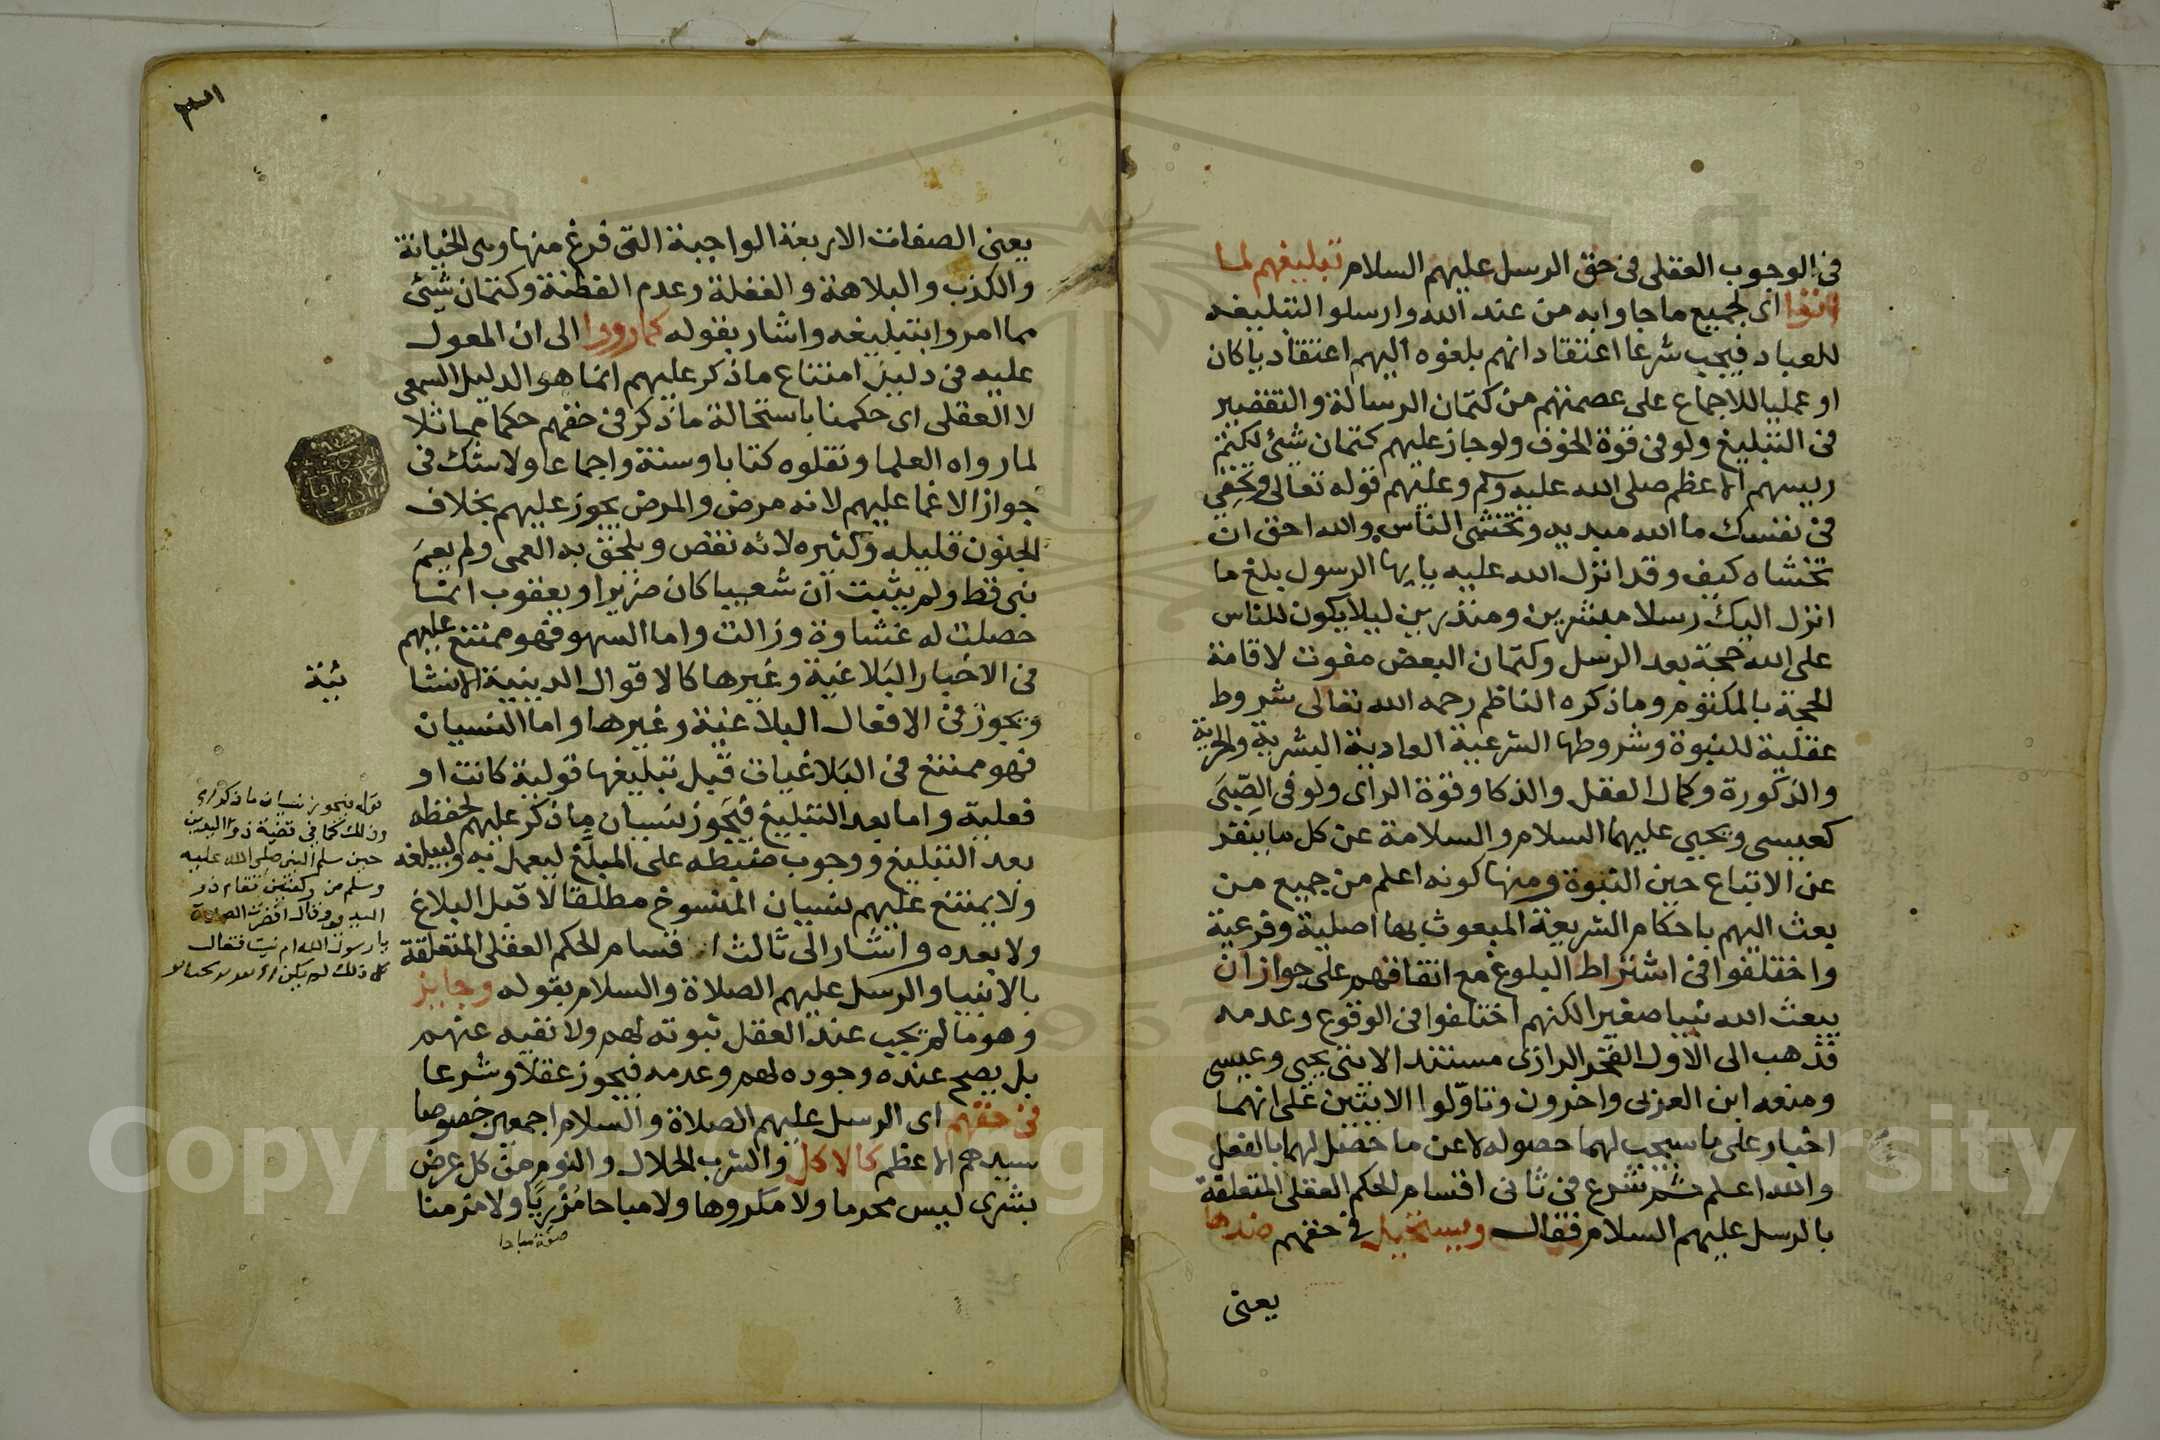 في الوجوب العقلى فى حق الرسل عليهم السلام تبليغهم لما
اتوا اى لجميع ما جاوا به من عند الله وارسلوا لتبليغه
للعباد فيجب شرعا اعتقاد انهم بلغوه اليهم اعتقاديا كان
او عمليا للاجماع على عصمتهم من كتمان الرسالة والتقصير
فى التبليغ ولو فى قوة الخوف ولو جاز عليهم كتمان شئ لكتم
رييسهم الاعظم صلى الله عليه وسلم وعليهم قوله تعالى وتخفي
في نفسك ما الله مبديه وتخشى الناس والله احق ان
تخشاه كيف وقد انزل الله عليه يايها الرسول بلغ ما
انزل اليك رسلا مبشرين ومنذرين ليلا يكون للناس
على الله حجة بعد الرسل وكتمان البعض مفوت لاقامة
الحجة بالمكتوم وما ذكره الناظم رحمه الله تعالى شروط
عقلية للنبوة وشروطها الشرعية العادية البشرية والحرية
والذكورة وكمال العقل والذكا وقوة الراى ولو فى الصبى
كعيسى ويحيى عليهما السلام والسلامة عن كل ما ينفر
عن الاتباع حين النبوة ومنها كونه اعلم من جميع من
بعث اليهم باحكام الشريعة المبعوث بها اصلية وفرعية
واختلفوا فى اشتراط البلوغ مع اتفاقهم على جواز ان
يبعث الله نبيا صغيرا لكنهم اختلفوا فى الوقوع وعدمه
فذهب الى الاول الفخر الرازى مستندا لايتى يحيى وعيسى
ومنعه ابن العربى واخرون وتاولوا الايتين على انهما
اخبار على ما سيجب لهما حصوله لا عن ما حصل لهما بالفعل
والله اعلم ثم شرع فى ثانى اقسام الحكم العقلى المتعلقة
بالرسل عليهم السلام فقال ويستحيل في حقهم ضدها
يعنى
يعنى الصفات الاربعة الواجبة التى فرغ منها وهى الخيانة
والكذب والبلاهة والغفلة وعدم الفطنة وكتمان شئ
مما امروا بتبليغه واشار بقوله كما رووا الى ان المعول
عليه فى دليل امتناع ما ذكر عليهم انما هو الدليل السمعى
لا العقلى اى حكمنا باستحالة ما ذكر فى حقهم حكما مماثلا
لما رواه العلما ونقلوه كتابا وسنة واجماعا ولا شك فى
جواز الاغما عليهم لانه مرض والمرض يجوز عليهم بخلاف
الجنون قليله وكثيره لانه نقص ويلحق به العمى ولم يعم
نبى قط ولم يثبت ان شعيبا كان ضريرا ويعقوب انما
حصلت له غشاوة وزالت واما السهو فهو ممتنع عليهم
فى الاخبار البلاغية وغيرها كالاقوال الدينية الانشا
ئية
ويجوز فى الافعال البلاغية وغيرها واما النسيان
فهو ممتنع فى البلاغيات قبل تبليغها قولية كانت او
فعلية واما بعد التبليغ فيجوز نسيان ما ذكر عليهم لحفظه
بعد التبليغ ووجوب ضبطه على المبلغ ليعمل به وليبلغه
ولا يمتنع عليهم نسيان المنسوخ مطلقا لا قبل البلاغ
ولا بعده واشار الى ثالث اقسام الحكم العقلى المتعلقة
بالانبيا والرسل عليهم الصلاة والسلام بقوله وجايز
وهو ما لم يجب عند العقل ثبوته لهم ولا نفيه عنهم
بل يصح عنده وجوده لهم وعدمه فيجوز عقلا وشرعا
فى حقهم اى الرسل عليهم الصلاة والسلام اجمعين خصوصا
سيدهم الاعظم كالاكل والشرب الحلال والنوم من كل عرض
بشرى ليس محرما ولا مكروها ولا مباحا مزريا ولا مزمنا
صفة مباحا
قوله فيجوز نسيان ما ذكر اى
وذلك كما فى قضية ذو اليدين
حين سلم النبى صلى الله عليه
وسلم من ركعتين فقام ذو
اليدين وقال اقصرت الصلاة
يا رسول الله ام نسيت فقال
كل ذلك لم يكن